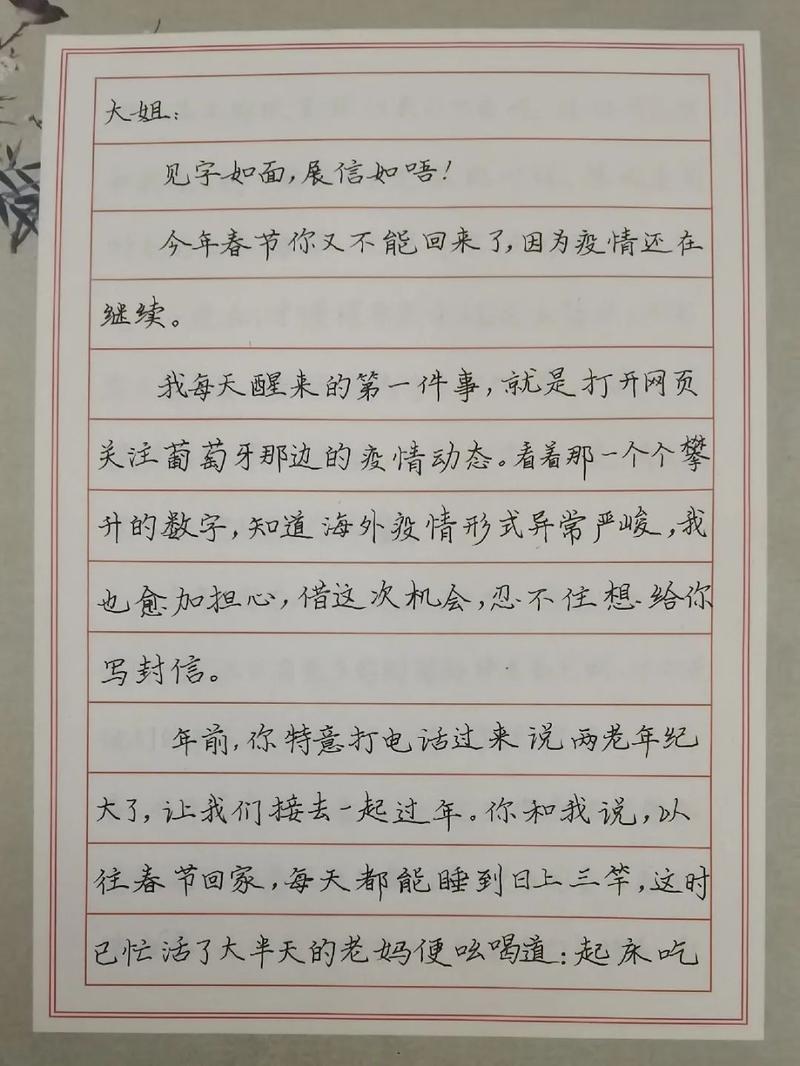 大姐：
见字如面，展信如唔！
今年春节你又不能回来了，因为疫情还在
继续。
我每天醒来的第一件事，就是打开网页
关注葡萄牙那边的疫情动态。看着那一个个攀
升的数字，知道海外疫情形式异常严峻，我
也愈加担心，借这次机会，忍不住想给你
写封信。
年前，你特意打电话过来说两老年纪
大了，让我们接去一起过年。你和我说，以
往春节回家，每天都能睡到日上三竿，这时
已忙活了大半天的老妈便吆喝道：起床吃